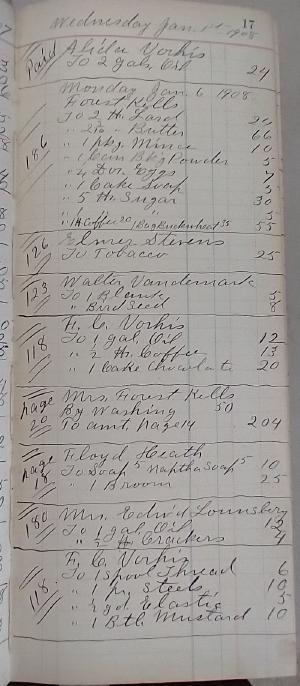 17
Wednesday Jan. 1st 1908
Paid Alida Vorhis
To 2 gals. Oil 24
Monday Jan. 6 1908
Forest Kells
To 2 lb. Lard
186 " " Butter 66
" 1 pkg. Mince 10
" 1 Can Bkg Powder 5
" Doz. Eggs 7
" 1 Cake Soap 5
" 5 lb. Sugar 30
" 1 lb Coffee 20 1 Bag Buckwheat 35 55
126 Elmer Stevens
To Tobacco 25
123 Walter Vandemark
To 1 Blank 5
" Bird Seed 8
118 F. C. Vorhis
To 1 gal. Oil 12
" lb. Coffee 13
" 1 Cake Chocolate 20
page 20 Mrs. Forest Kells
By Washing 50
To amt. Page 14 204
page 18 Floyd Heath
To Soap 5 Naptha Soap 5 10
" 1 Broom 25
180 Mrs. Edwd Lounsbery
To 1 gal. Oil 12
" lb. Crackers 4
118 F. C. Vorhis
To 1 Spool Thread 6
" 1 pr Steels 10
" yd. Elastic 5
" 1 Btl. Mustard 10